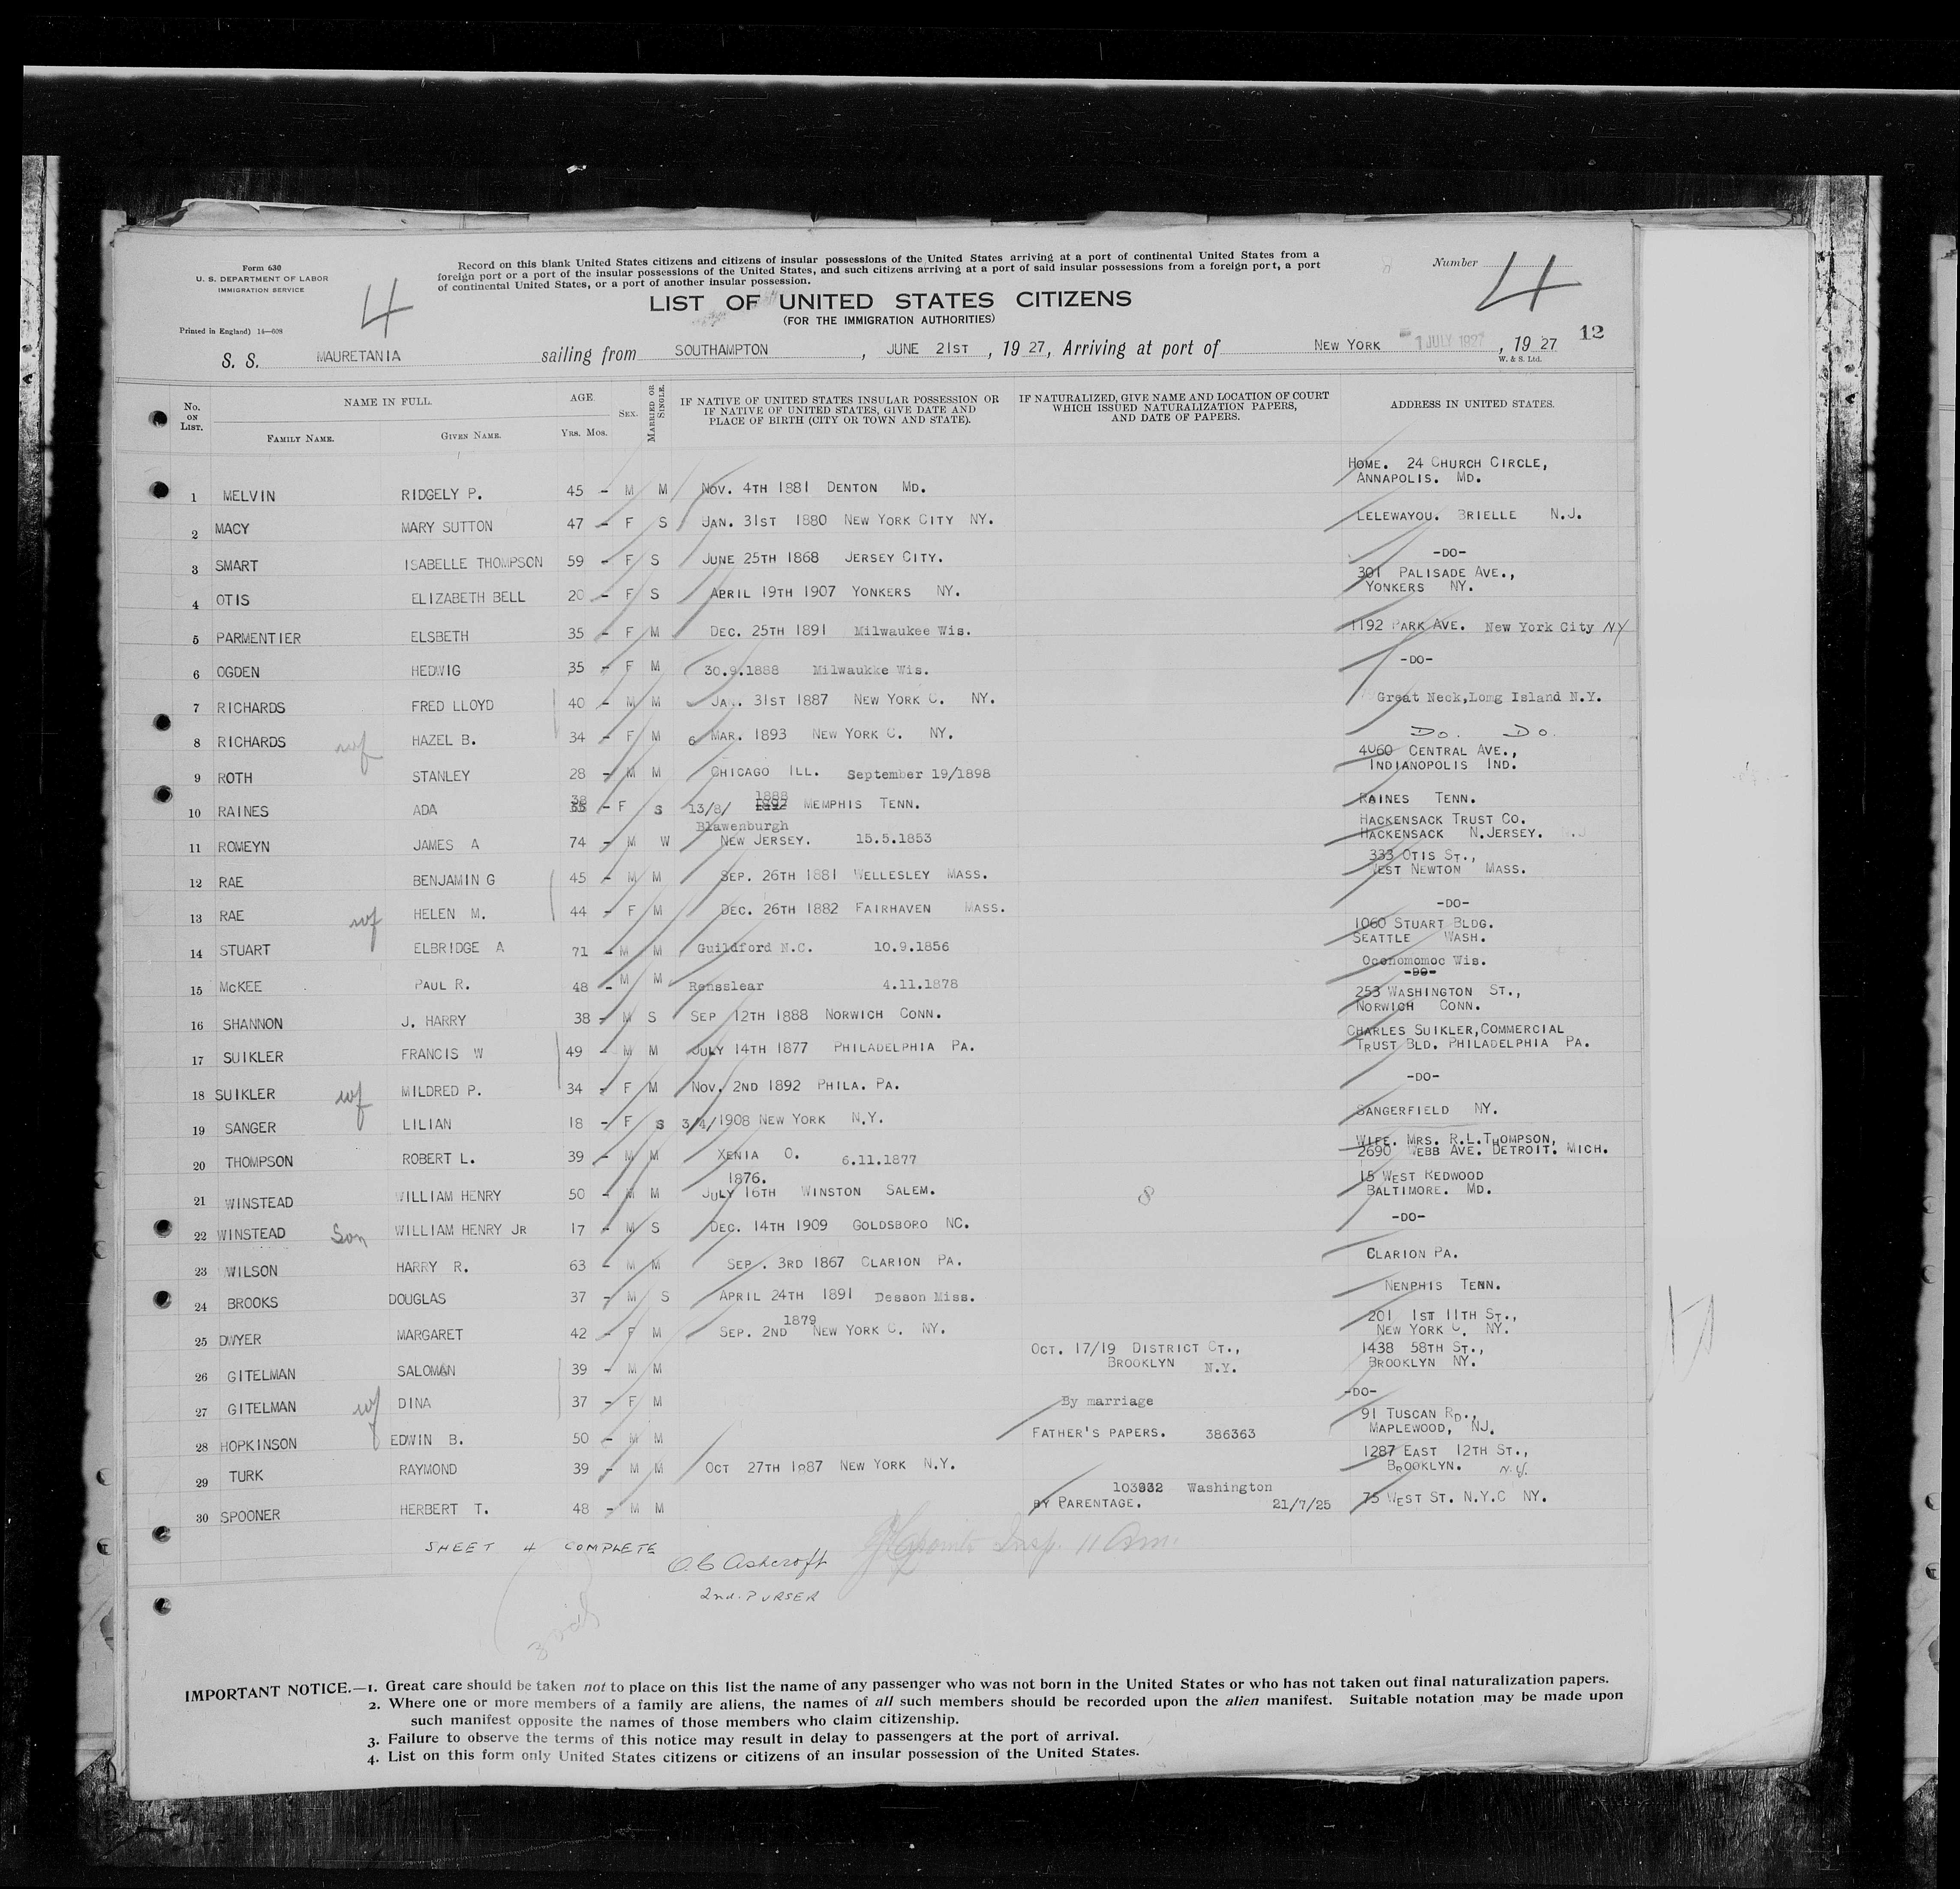 Form 630
U. S. DEPARTMENT OF LABOR
IMMIGRATION SERVICE
Printed in England) 14—608
4
Record on this blank United States citizens and citizens of insular possessions of the United States arriving at a port of continental United States from a
foreign port or a port of the insular possessions of the United States, and such citizens arriving at a port of said insular possessions from a foreign port, a port
of continental United States, or a port of another insular possession.
Number 4
LIST OF UNITED STATES CITIZENS
(FOR THE IMMIGRATION AUTHORITIES)
12
S. S. MAURETANIA sailing from SOUTHAMPTON, JUNE 21ST, 19 27, Arriving at port of NEW YORK 1 JULY 1927, 19 27
W. & S. Ltd.
No. ON LIST. NAME IN FULL. FAMILY NAME. GIVEN NAME. AGE. YRS. MOS. SEX. MARRIED OR SINGLE. IF NATIVE OF UNITED STATES INSULAR POSSESSION OR IF NATIVE OF UNITED STATES, GIVE DATE AND PLACE OF BIRTH (CITY OR TOWN AND STATE). IF NATURALIZED, GIVE NAME AND LOCATION OF COURT WHICH ISSUED NATURALIZATION PAPERS, AND DATE OF PAPERS. ADDRESS IN UNITED STATES.
1 MELVIN RIDGELY P. 45 - M M NOV. 4TH 1881 DENTON MD. HOME. 24 CHURCH CIRCLE, ANNAPOLIS. MD.
2 MACY MARY SUTTON 47 - F S JAN. 31ST 1880 NEW YORK CITY NY. LELEWAYOU. BRIELLE N.J.
3 SMART ISABELLE THOMPSON 59 - F S JUNE 25TH 1868 JERSEY CITY. -DO-
4 OTIS ELIZABETH BELL 20 - F S APRIL 19TH 1907 YONKERS NY. 301 PALISADE AVE., YONKERS NY.
5 PARMENTIER ELSBETH 35 - F M DEC. 25TH 1891 Milwaukee Wis. 1192 PARK AVE. New York City NY
6 OGDEN HEDWIG 35 - F M 30.9.1888 Milwaukke Wis. -DO-
7 RICHARDS FRED LLOYD 40 - M M JAN. 31ST 1887 NEW YORK C. NY. Great Neck,Lomg Island N.Y.
8 RICHARDS wf HAZEL B. 34 - F M 6 MAR. 1893 NEW YORK C. NY. Do. Do.
9 ROTH STANLEY 28 - M M CHICAGO ILL. September 19/1898 4060 CENTRAL AVE., INDIANOPOLIS IND.
10 RAINES ADA 38 - F S 13/8/ 1888 MEMPHIS TENN. RAINES TENN.
11 ROMEYN JAMES A 74 - M W Blawenburgh NEW JERSEY. 15.5.1853 HACKENSACK TRUST CO. HACKENSACK N.JERSEY.
12 RAE BENJAMIN G 45 - M M SEP. 26TH 1881 WELLESLEY MASS. 333 OTIS ST., WEST NEWTON MASS.
13 RAE wf HELEN M. 44 - F M DEC. 26TH 1882 FAIRHAVEN MASS. -DO-
14 STUART ELBRIDGE A 71 - M M Guildford N.C. 10.9.1856 1060 STUART BLDG. SEATTLE WASH.
15 McKEE PAUL R. 48 - M M Rensslear 4.11.1878 Oconomomoc Wis.
16 SHANNON J. HARRY 38 - M S SEP 12TH 1888 NORWICH CONN. 253 WASHINGTON ST., NORWICH CONN.
17 SUIKLER FRANCIS W 49 - M M JULY 14TH 1877 PHILADELPHIA PA. CHARLES SUIKLER,COMMERCIAL TRUST BLD. PHILADELPHIA PA.
18 SUIKLER wf MILDRED P. 34 - F M NOV. 2ND 1892 PHILA. PA. -DO-
19 SANGER LILIAN 18 - F S 3/4/1908 NEW YORK N.Y. SANGERFIELD NY.
20 THOMPSON ROBERT L. 39 - M M XENIA O. 6.11.1877 WIFE. MRS. R.L.THOMPSON, 2690 WEBB AVE. DETROIT. MICH.
21 WINSTEAD WILLIAM HENRY 50 - M M 1876. JULY 16TH WINSTON SALEM. 8 15 WEST REDWOOD BALTIMORE. MD.
22 WINSTEAD Son WILLIAM HENRY JR 17 - M S DEC. 14TH 1909 GOLDSBORO NC. -DO-
23 WILSON HARRY R. 63 - M M SEP. 3RD 1867 CLARION PA. CLARION PA.
24 BROOKS DOUGLAS 37 - M S APRIL 24TH 1891 Desson Miss. NENPHIS TENN.
25 DWYER MARGARET 42 - F M SEP. 2ND 1879 NEW YORK C. NY. 201 1ST 11TH ST., NEW YORK C. NY.
26 GITELMAN SALOMAN 39 - M M OCT. 17/19 DISTRICT CT., BROOKLYN N.Y. 1438 58TH ST., BROOKLYN NY.
27 GITELMAN wf DINA 37 - F M By marriage -DO-
28 HOPKINSON EDWIN B. 50 - M M FATHER'S PAPERS. 386363 91 TUSCAN RD., MAPLEWOOD, NJ.
29 TURK RAYMOND 39 - M M OCT 27TH 1887 NEW YORK N.Y. 1287 EAST 12TH ST., BROOKLYN. N.Y.
30 SPOONER HERBERT T. 48 - M M 103932 Washington BY PARENTAGE. 21/7/25 75 WEST ST. N.Y.C NY.
SHEET 4 COMPLETE
O C Ashcroft
2nd. PURSER
Insp. 11 Am.
IMPORTANT NOTICE.—1. Great care should be taken not to place on this list the name of any passenger who was not born in the United States or who has not taken out final naturalization papers.
2. Where one or more members of a family are aliens, the names of all such members should be recorded upon the alien manifest. Suitable notation may be made upon
such manifest opposite the names of those members who claim citizenship.
3. Failure to observe the terms of this notice may result in delay to passengers at the port of arrival.
4. List on this form only United States citizens or citizens of an insular possession of the United States.